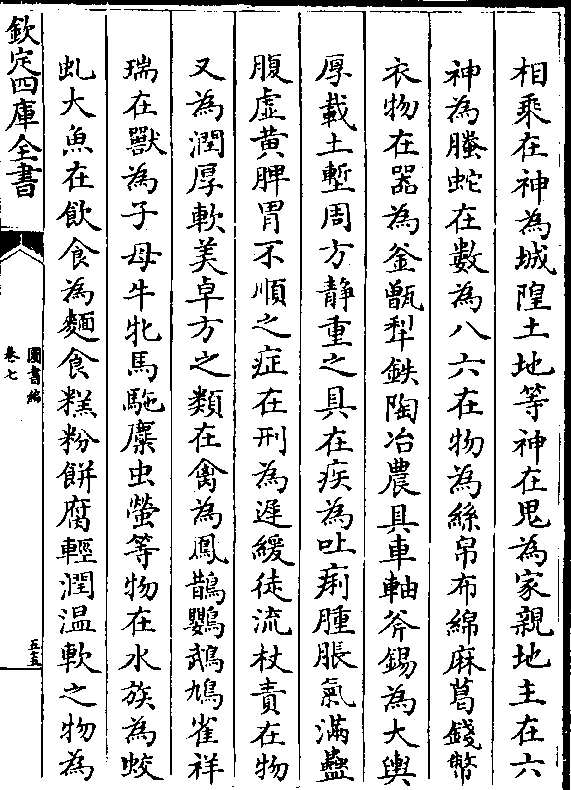 相乘在神為城隍土地等神在鬼為家親地主在六
神為螣蛇在數為八六在物為絲帛布綿麻葛錢幣
衣物在器為釜甑犁鉄陶冶農具車軸斧錫為大輿
厚載土塹周方靜重之具在疾為吐痢腫脹氣滿蠱
腹虛黃脾胃不順之症在刑為遲緩徒流杖責在物
又為潤厚軟美卓方之類在禽為鳳鵲鸚鵡鳩雀祥
瑞在獸為子母牛牝馬駞麋虫螢等物在水族為蛟
虬大魚在飲食為麵食糕粉餅腐輕潤温軟之物為
欽定四庫全書
圖書編
卷七
五五